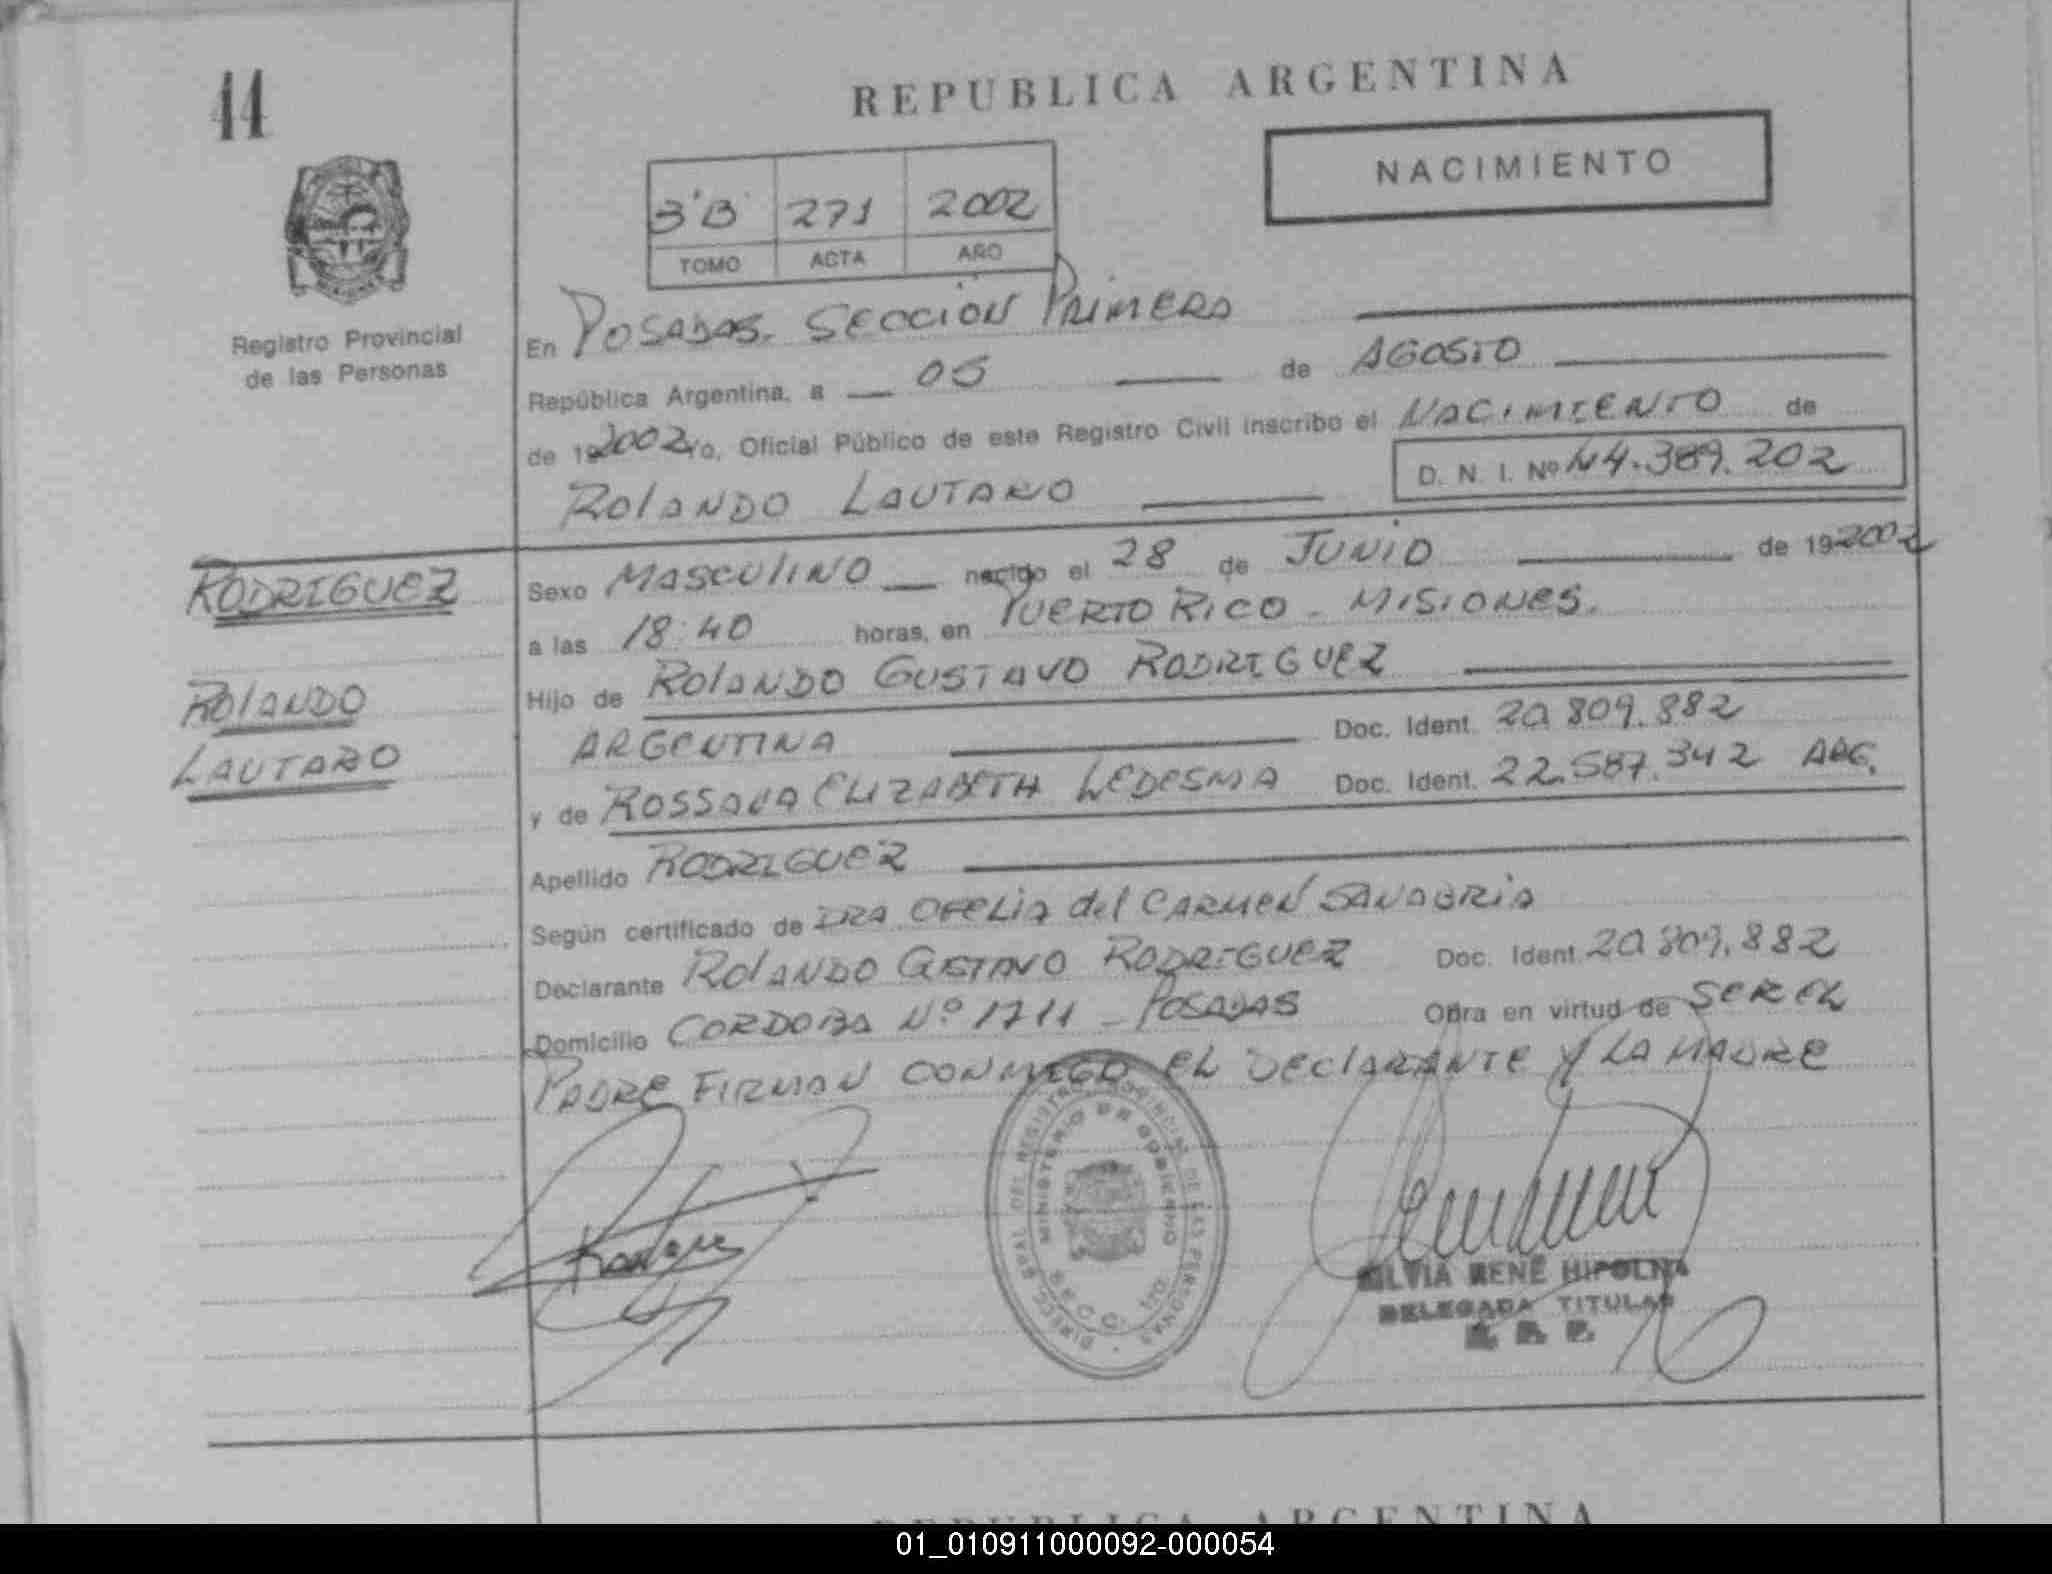 44
REPUBLICA ARGENTINA
NACIMIENTO
3'B 271 2002
TOMO ACTA AÑO
Registro Provincial
de las Personas
En POSADAS. SECCION PRIMERA
República Argentina, a 05 de AGOSTO
de 192002 Yo, Oficial Público de este Registro Civil inscribo el NACIMIENTO de
D. N. I. Nº 44.389.202
ROLANDO LAUTARO
RODRIGUEZ
ROLANDO
LAUTARO
Sexo MASCULINO nacido el 28 de JUNIO de 192002
a las 18:40 horas, en PUERTO RICO - MISIONES.
Hijo de ROLANDO GUSTAVO RODRIGUEZ
ARGENTINA Doc. Ident. 20.809.882
y de ROSSANA ELIZABETH LEDESMA Doc. Ident. 22.587.342 ARG.
Apellido RODRIGUEZ
Según certificado de DRA OFELIA del CARMEN SANABRIA
Declarante ROLANDO GUSTAVO RODRIGUEZ Doc. Ident. 20.809.882
Domicilio CORDOBA Nº 1711 - POSADAS Obra en virtud de SER EL
PADRE FIRMAN CONMIGO EL DECLARANTE Y LA MADRE
DIREC. GRAL. DEL REGISTRO PROVINCIAL DE LAS PERSONAS
MINISTERIO DE GOBIERNO
SILVIA RENE HIPOLITA
DELEGADA TITULAR
R. P. P.
REPUBLICA ARGENTINA
01_010911000092-000054